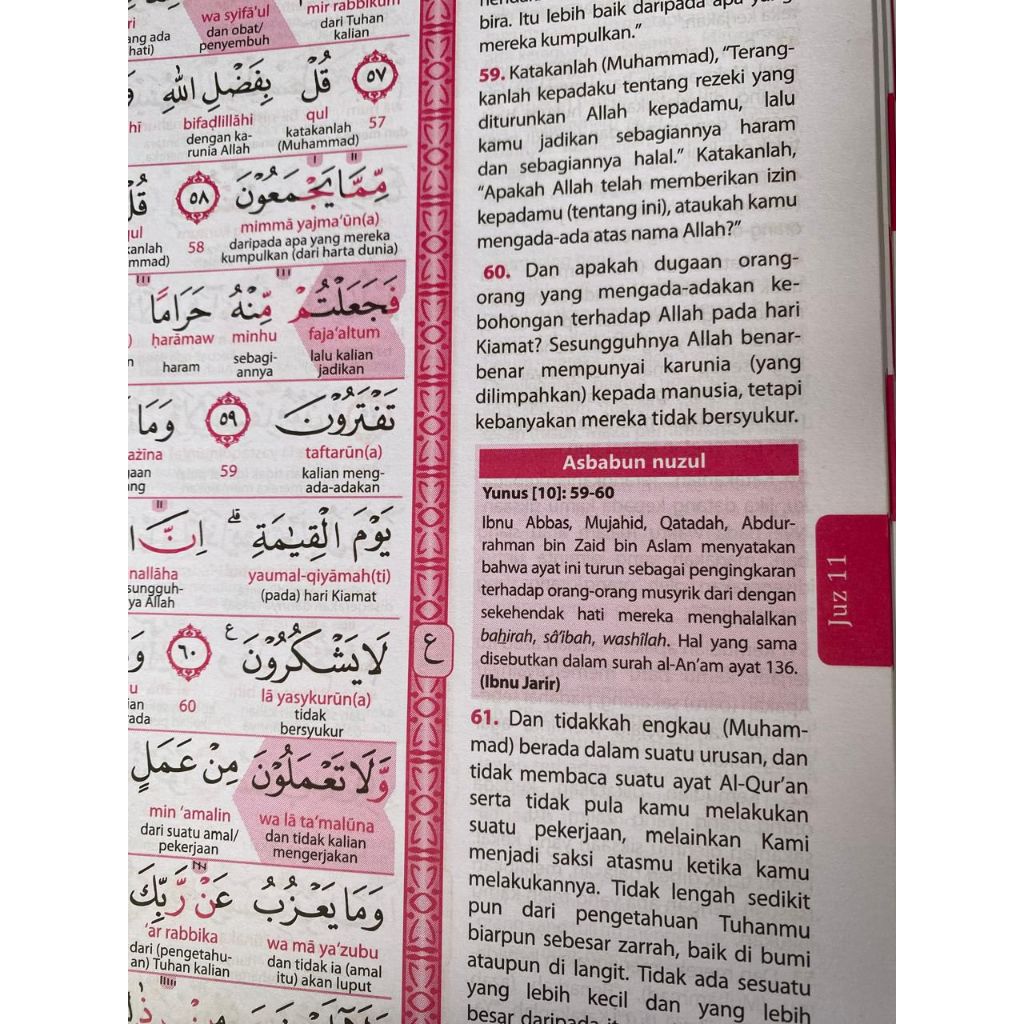 wa syifā'ul
mir rabbikum
dan obat/
penyembuh
dari Tuhan
kalian
ang ada
hati)
قُلْ بِفَضْلِ اللّٰهِ
٥٧
bifaḍlillāhi
qul
57
dengan ka-
runia Allah
katakanlah
(Muhammad)
مِّمَّا يَجْمَعُوْنَ
٥٨
mimmā yajma'ūn(a)
58
daripada apa yang mereka
kumpulkan (dari harta dunia)
فَجَعَلْتُمْ مِّنْهُ حَرَامًا
ḥarāmaw
minhu
faja'altum
haram
sebagi-
annya
lalu kalian
jadikan
تَفْتَرُوْنَ
٥٩
وَمَا
taftarūn(a)
59
kalian meng-
ada-adakan
يَوْمَ الْقِيٰمَةِ ۗ اِنَّ
nallāha
yaumal-qiyāmah(ti)
sungguh-
ya Allah
(pada) hari Kiamat
لَا يَشْكُرُوْنَ ࣖ
٦٠
lā yasykurūn(a)
60
tidak
bersyukur
ع
وَّلَا تَعْمَلُوْنَ مِنْ عَمَلٍ
min 'amalin
wa lā ta'malūna
dari suatu amal/
pekerjaan
dan tidak kalian
mengerjakan
وَمَا يَعْزُبُ عَنْ رَّبِّكَ
'ar rabbika
wa mā ya'zubu
dari (pengetahu-
an) Tuhan kalian
dan tidak ia (amal
itu) akan luput
bira. Itu lebih baik daripada apa yang
mereka kumpulkan.”
59. Katakanlah (Muhammad), “Terang-
kanlah kepadaku tentang rezeki yang
diturunkan Allah kepadamu, lalu
kamu jadikan sebagiannya haram
dan sebagiannya halal.” Katakanlah,
“Apakah Allah telah memberikan izin
kepadamu (tentang ini), ataukah kamu
mengada-ada atas nama Allah?”
60. Dan apakah dugaan orang-
orang yang mengada-adakan ke-
bohongan terhadap Allah pada hari
Kiamat? Sesungguhnya Allah benar-
benar mempunyai karunia (yang
dilimpahkan) kepada manusia, tetapi
kebanyakan mereka tidak bersyukur.
Asbabun nuzul
Yunus [10]: 59-60
Ibnu Abbas, Mujahid, Qatadah, Abdur-
rahman bin Zaid bin Aslam menyatakan
bahwa ayat ini turun sebagai pengingkaran
terhadap orang-orang musyrik dari dengan
sekehendak hati mereka menghalalkan
baḥirah, sâ'ibah, washîlah. Hal yang sama
disebutkan dalam surah al-An'am ayat 136.
(Ibnu Jarir)
61. Dan tidakkah engkau (Muham-
mad) berada dalam suatu urusan, dan
tidak membaca suatu ayat Al-Qur'an
serta tidak pula kamu melakukan
suatu pekerjaan, melainkan Kami
menjadi saksi atasmu ketika kamu
melakukannya. Tidak lengah sedikit
pun dari pengetahuan Tuhanmu
biarpun sebesar zarrah, baik di bumi
ataupun di langit. Tidak ada sesuatu
yang lebih kecil dan yang lebih
besar daripada
Juz 11